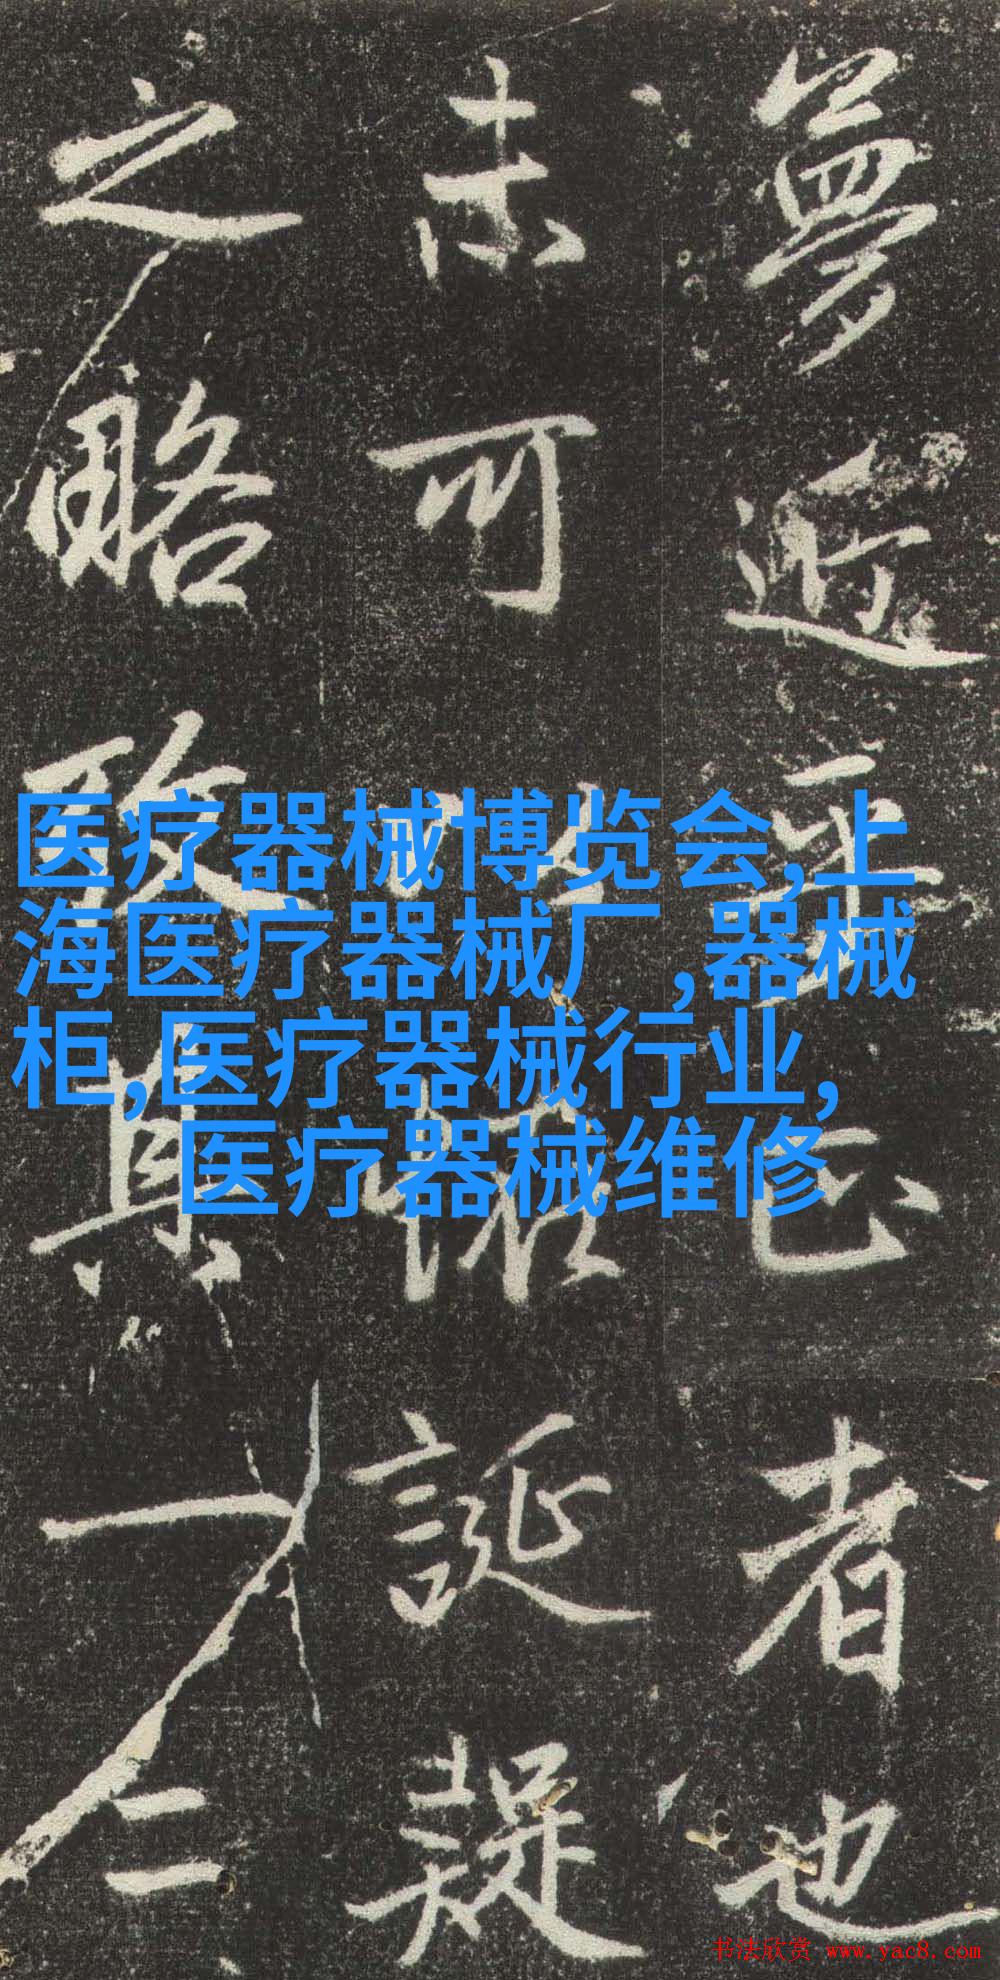 医疗器械博览会,上
海医疗器械厂,器械
柜,医疗器械行业,
医疗器械维修
夢近乎正者也
未可以恠誕疑
之略致其一二
书法欣赏 www.yac8.com